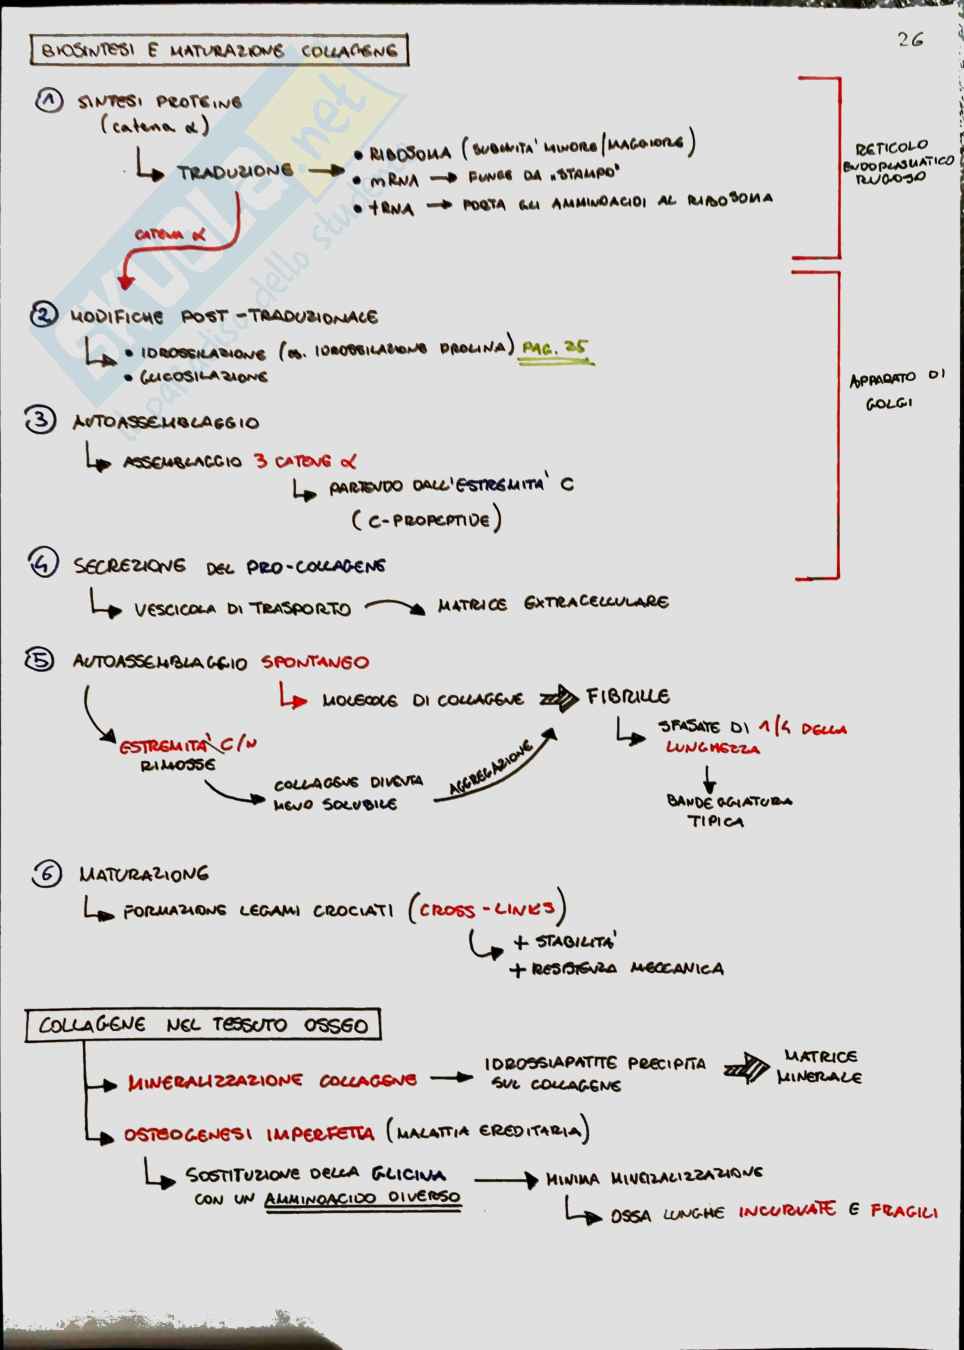 26
BIOSINTESI E MATURAZIONE COLLAGENE
1 SINTESI PROTEINE
(catena α)
TRADUZIONE
• RIBOSOMA (SUBUNITA' MINORE/MAGGIORE)
• mRNA → FUNGE DA "STAMPO"
• tRNA → PORTA GLI AMMINOACIDI AL RIBOSOMA
CATENA α
RETICOLO
ENDOPLASMATICO
RUGOSO
2 MODIFICHE POST-TRADUZIONALE
• IDROSSILAZIONE (es. IDROSSILAZIONE PROLINA) PAG. 25
• GLICOSILAZIONE
3 AUTOASSEMBLAGGIO
ASSEMBLAGGIO 3 CATENE α
PARTENDO DALL'ESTREMITA' C
(C-PROPEPTIDE)
APPARATO DI
GOLGI
4 SECREZIONE DEL PRO-COLLAGENE
VESCICOLA DI TRASPORTO → MATRICE EXTRACELLULARE
5 AUTOASSEMBLAGGIO SPONTANEO
MOLECOLE DI COLLAGENE ⇒ FIBRILLE
SFASATE DI 1/4 DELLA
LUNGHEZZA
BANDEGGIATURA
TIPICA
ESTREMITA' C/N
RIMOSSE
COLLAGENE DIVENTA
MENO SOLUBILE
AGGREGAZIONE
6 MATURAZIONE
FORMAZIONE LEGAMI CROCIATI (CROSS-LINKS)
+ STABILITA'
+ RESISTENZA MECCANICA
COLLAGENE NEL TESSUTO OSSEO
MINERALIZZAZIONE COLLAGENE → IDROSSIAPATITE PRECIPITA
SUL COLLAGENE
⇒ MATRICE
MINERALE
OSTEOGENESI IMPERFETTA (MALATTIA EREDITARIA)
SOSTITUZIONE DELLA GLICINA
CON UN AMMINOACIDO DIVERSO
→ MINIMA MINERALIZZAZIONE
OSSA LUNGHE INCURVATE E FRAGILI
SKUOLA.net
il paradiso dello studente